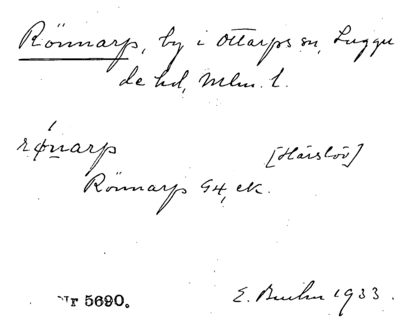 Rönnarp, by i Ottarps sn, Luggu
de hd, Mlm. l.
rǿnarp [Härslöv]
Rönnarp G4, ek.
Nr 5690. E. 1933.